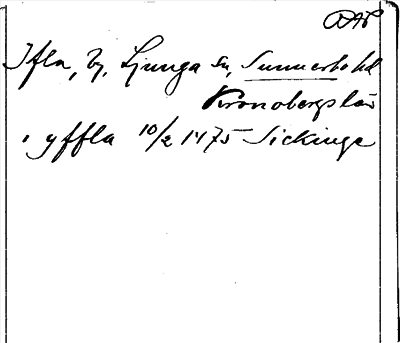 DAP
Ifla, by, Ljunga sn, Sunnerbo hd
Kronobergs län
i yffla 10/2 1475 Sickinge